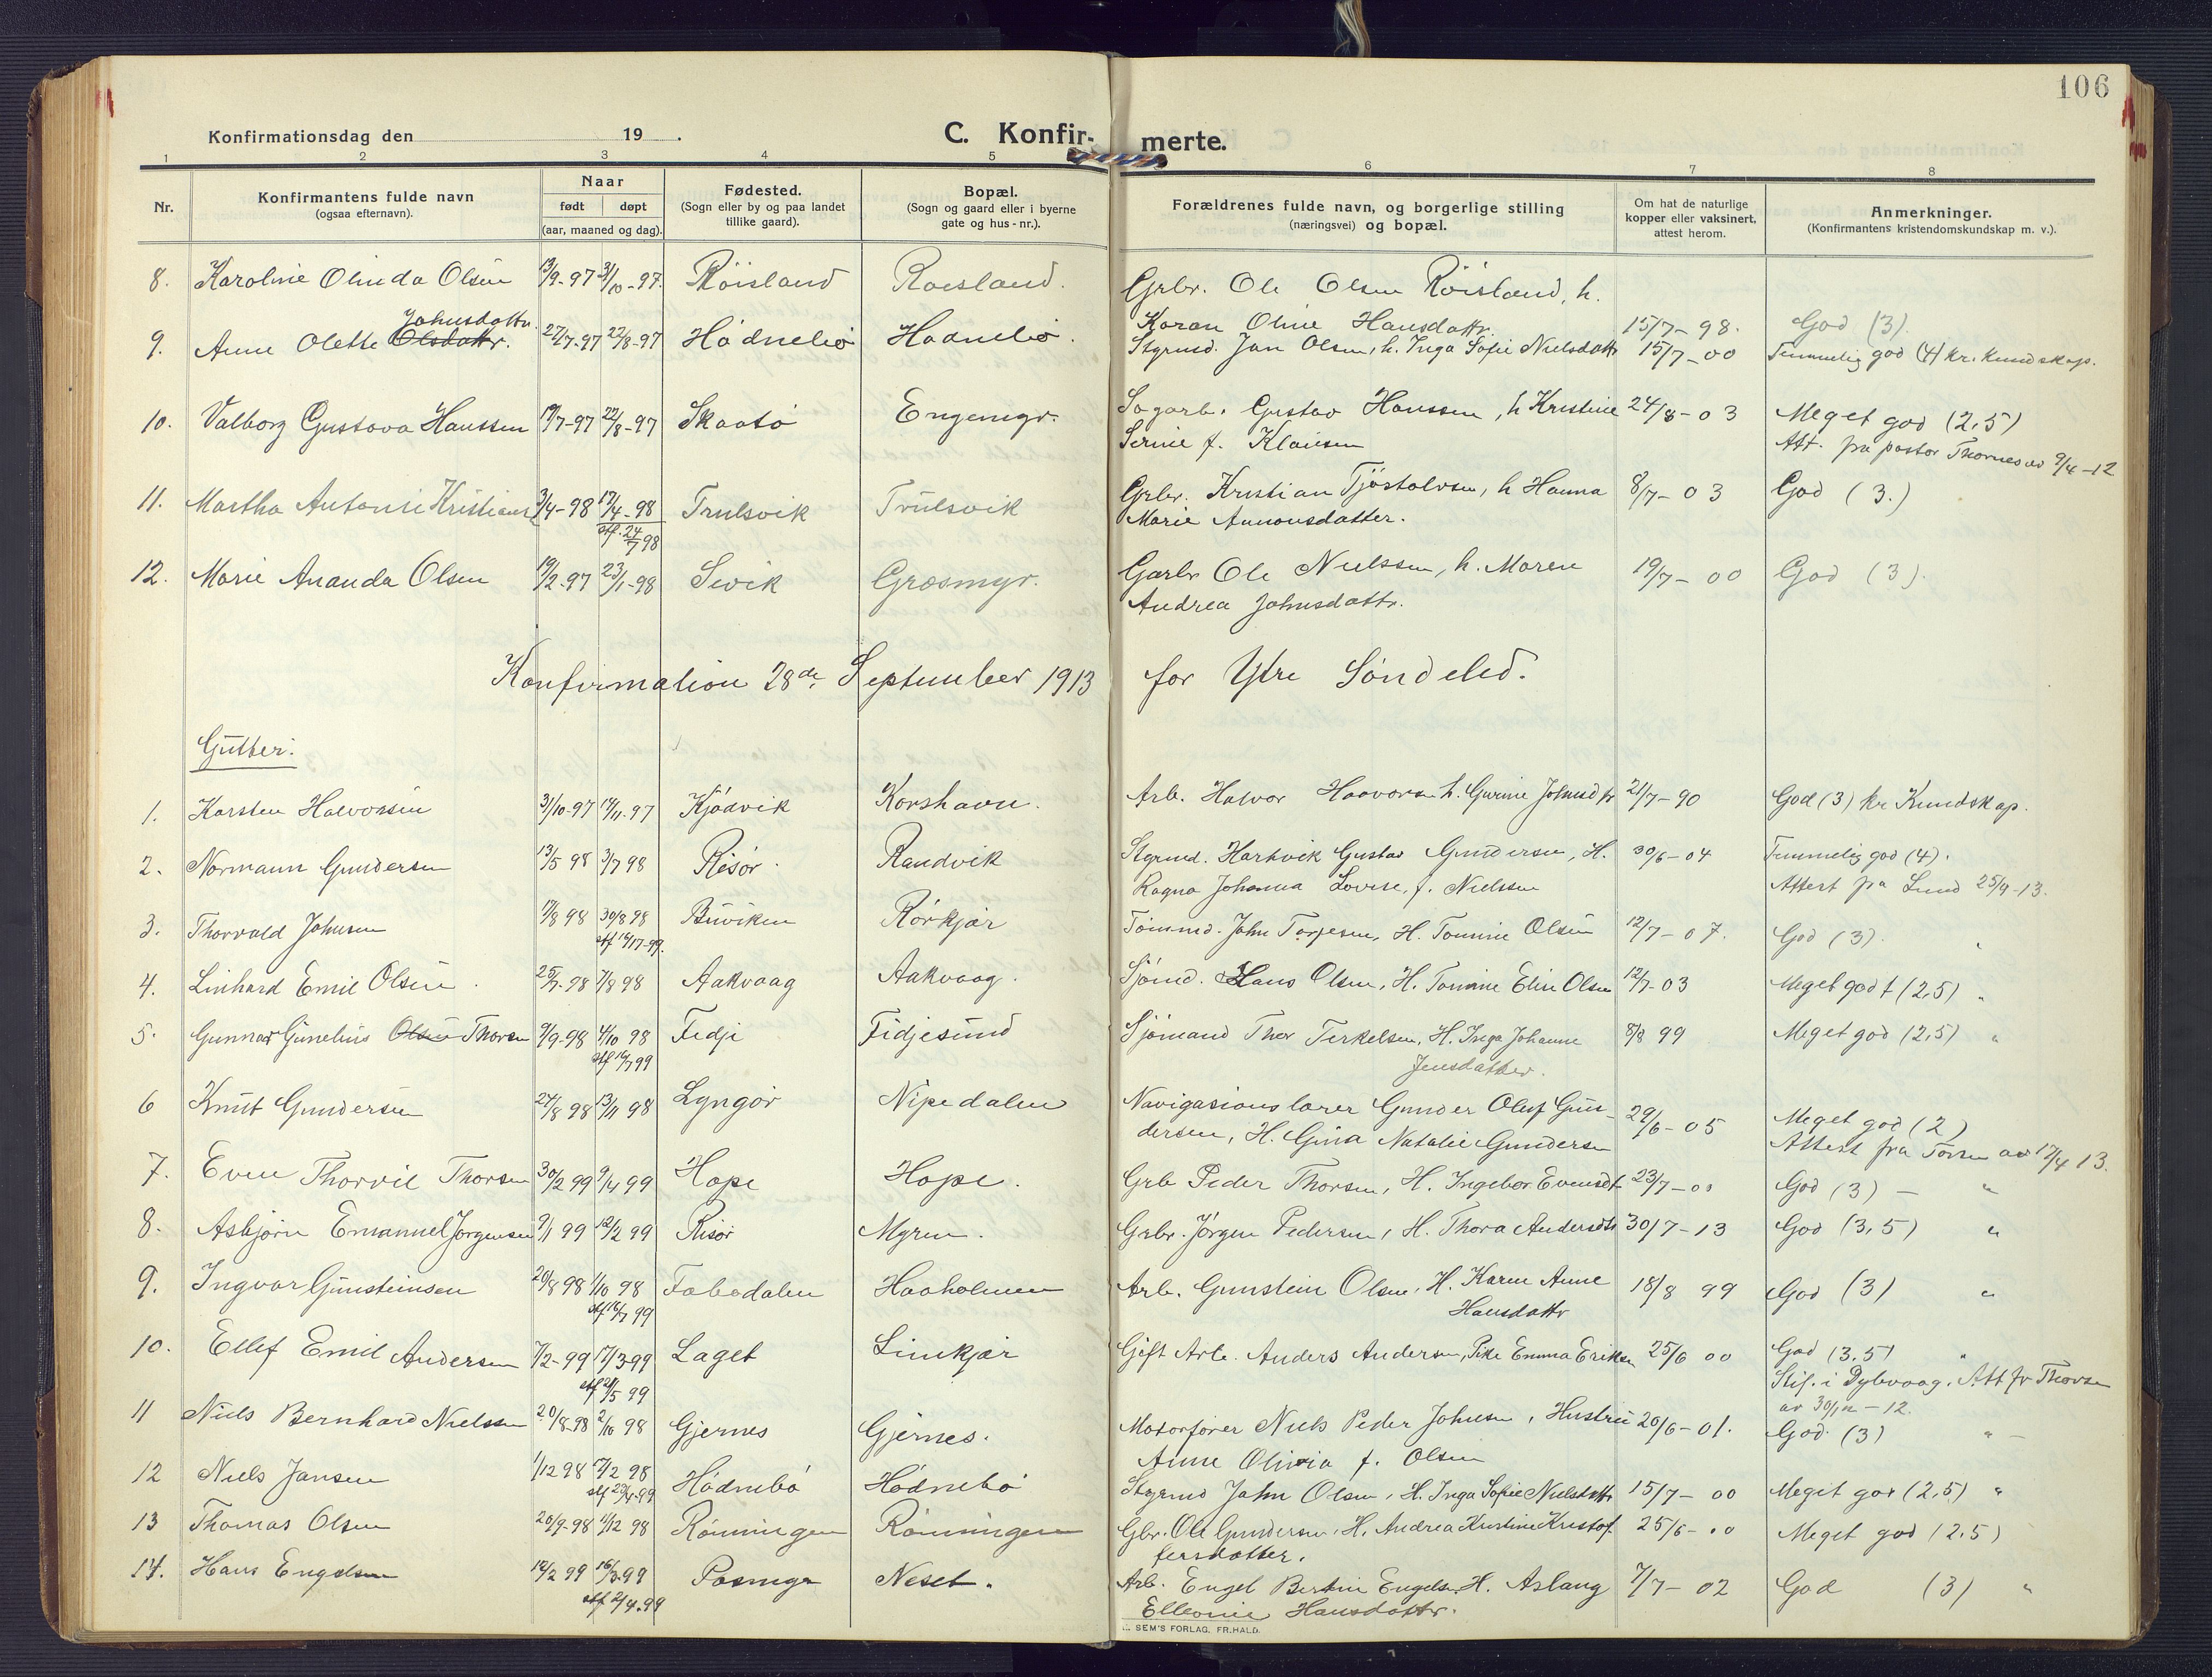 106
Konfirmationsdag den 19 .
C. Konfir- merte.
1 2 3 4 5 6 7 8
Nr.
Konfirmantens fulde navn (ogsaa efternavn).
Naar født døpt (aar, maaned og dag).
Fødested. (Sogn eller by og paa landet tillike gaard).
Bopæl. (Sogn og gaard eller i byerne gate og hus-nr.).
Forældrenes fulde navn, og borgerlige stilling (næringsvei) og bopæl.
Om hat de naturlige kopper eller vaksinert, attest herom.
Anmerkninger. (Konfirmantens kristendomskundskap m. v.).
8. Karoline Olinda Olsen 13/9-97 31/10-97. Röisland Roesland. Grbr. Ole Olsen Röisland, h. Karen Oline Hansdattr. 15/7-98. God (3).
9. Anne Olette Olsdattr. Johnsdattr. 27/7-97 22/8-97 Hødnebø Hødnebø. Styrmd. Jan Olsen, h. Inga Sofie Nielsdattr 15/7-00 Temmelig god (4) kr. kundskap.
10. Valborg Gustava Hanssen 19/7-97 22/8-97 Skaatø Engemyr. Sagarb. Gustav Hanssen, h Kristine Serine f. Klausen 24/8-03 Meget god (2,5) Att. fra pastor Thornes av 9/4-12
11. Martha Antonie Kristians 3/4-98 17/4-98 stf. 24/7 98 Trulsvik Trulsvik Grbr. Kristian Tjöstolvsen, h Hanna Marie Amonsdatter. 8/7-03 God (3.)
12. Marie Ananda Olsen 19/2-97 23/1-98 Sevik Græsmyr. Garbr Ole Nielssen, h. Maren Andrea Johnsdattr. 19/7-00 God (3).
Konfirmation 28de September 1913 for Ytre Söndeled.
Gutter.
1. Karsten Halvorsen 31/10-97 14/11-97 Kjödvik Korshavn. Arb. Halvor Haavorsen h. Gurine Johnsdtr 21/7-90 God (3) kr Kundskap.
2. Normann Gundersen 13/5 98 3/7 98 Risör. Randvik Styrmd. Hartvik Gustav Gundersen, H. Ragna Johanna Lovise, f. Nielssen 30/6-04 Temmelig god (4). Attest fra Lund 25/9-13.
3. Thorvald Johnsen 17/8 98 30/8 98 stf 16/7-99. Buviken Rörkjær Tömmd. John Torjesen, H. Tomine Olsen 12/7-07. God (3).
4. Linhard Emil Olsen. 25/7-98 7/8 98 Aakvaag Aakvaag. Sjömd. Hans Olsen, H. Tomine Elise Olsen 12/7-03 Meget godt (2,5) "
5. Gunnar Gunelius Olsen Thorsen 9/9-98 4/10 98 stf 16/7 99 Fidje Fidjesund Sjömand Thor Terkelsen, H. Inga Johanne Jensdatter. 8/8 99 Meget god (2,5) "
6 Knut Gundersen 24/8 98 13/11 98 Lyngör Nipedalen Navigasionslærer Gunder Oluf Gundersen, H. Gina Natalie Gundersen 29/6-05 Meget god (2) Attest fra Torsen av 17/4 13.
7. Even Thorvil Thorsen 30/2 99 9/4 99 Hope Hope. Grb Peder Thorsen, H. Ingebor Evensdt. 23/7-00 God (3) - "
8. Asbjörn Emanuel Jörgensen 9/1 99 12/2 99 Risör Myren. Grbr. Jörgen Pedersen, H. Thora Andersdtr 30/7-13 God (3,5) "
9. Ingvar Gunsteinsen 20/8 98 1/10 98 stf 16/7 99 Haaholmen Arb. Gunstein Olsen, H. Karen Anne Hansdattr 18/8 99 God (3) "
10. Ellef Emil Andersen 7/2-99 17/3-99 stf 21/5 99 Laget Limkjær Gift Arb. Anders Andersen, Pike Emma Eriksen 25/6 00 God (3,5) " Stif. i Dybvaag. Att fr Thorsen av 30/12-12.
11 Niels Bernhard Nielssen 20/8-98 2/10 98 Gjernes Gjernes. Motorförer Niels Peder Johnsen, Hustru Anne Olivia f. Olsen 20/6-01. God (3) " -
12 Niels Jansen 1/12 98 17/2 98 stf 23/4-99 Hödnebö Hödnebö Styrmd John Olsen, H. Inga Sofie Nielsdattr 15/7-00 Meget god (2,5) "
13 Thomas Olsen 20/9-98 11/12 98 Rönningen Rönningen Gbr. Ole Gundersen, H. Andrea Kristine Kristoffersdatter. 25/6-00 Meget god (2,5)
14. Hans Engelsen 14/2 99 16/3-99 stf 2/4.99 Neset. Arb. Engel Bertin Engelsen H. Aslaug Elleonie Hansdattr. 7/7-02 God (3) "
SEM'S FORLAG. FR.HALD.